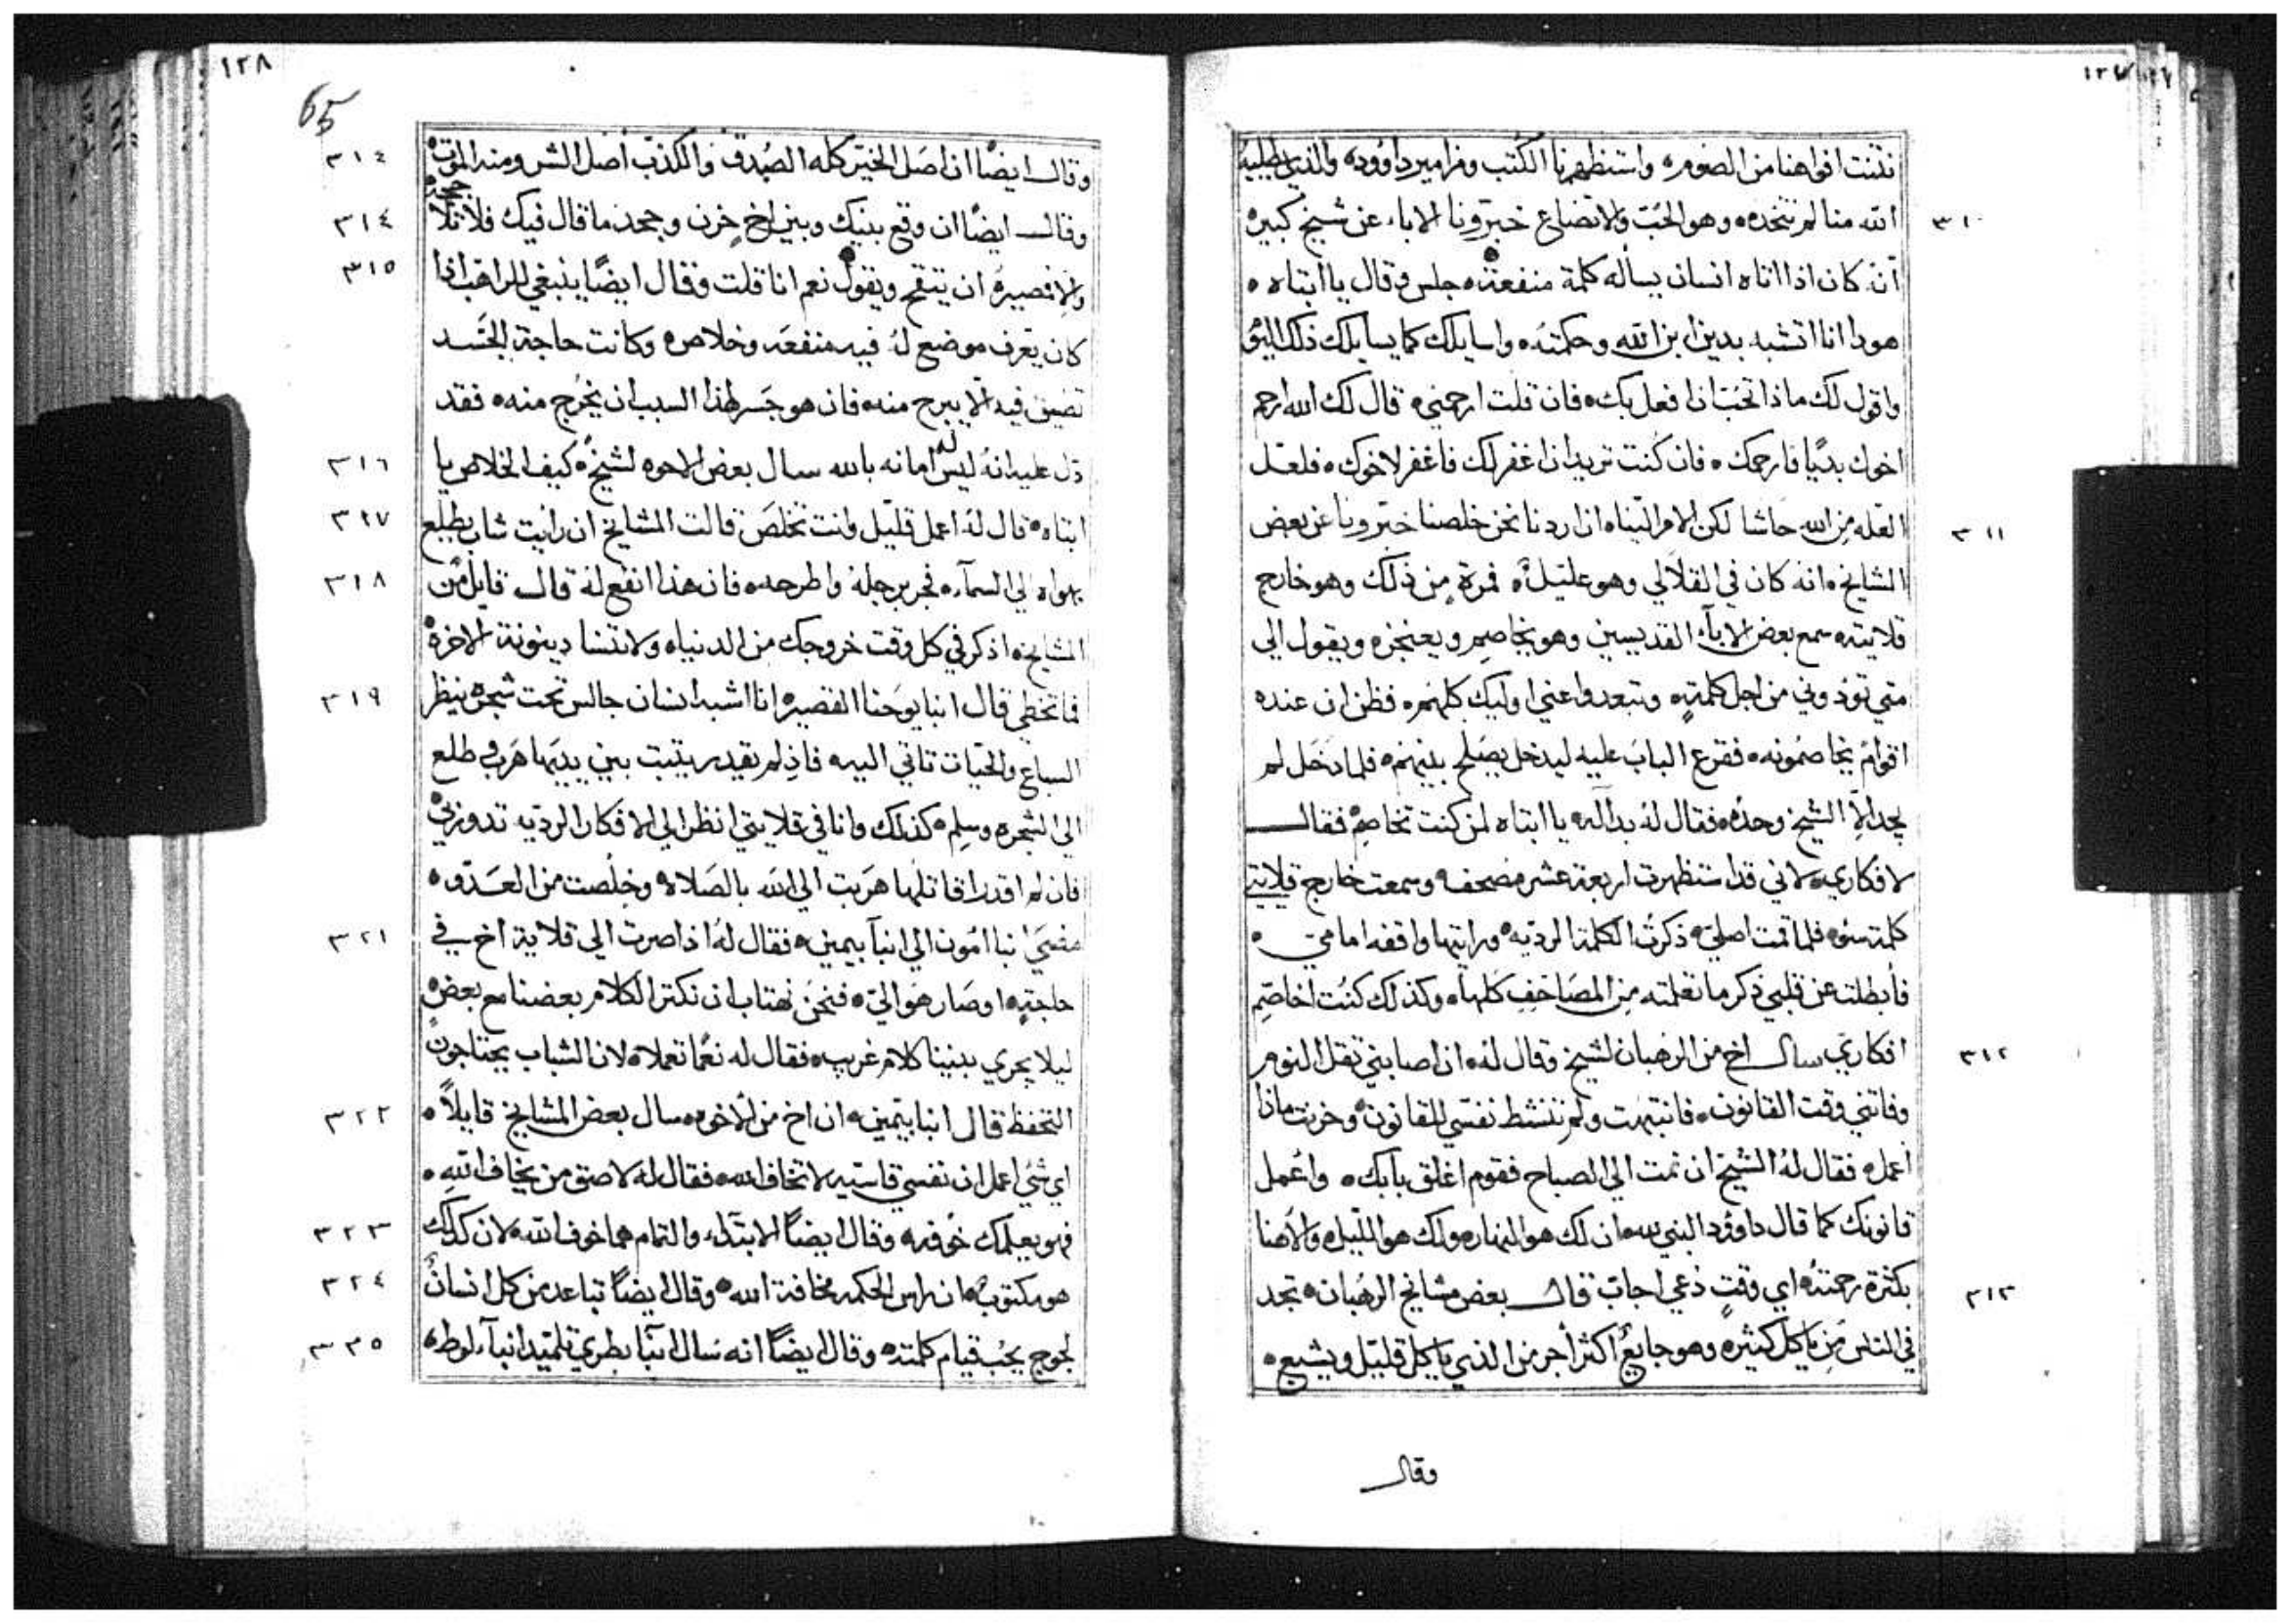 ١٢٧
نتنت افواهنا من الصوم، واستظهرنا الكتب ومزامير داوود، والذي يطلبه
الله منا لم نتخده، وهو الحب والاتضاع خبرونا الاباء عن شيخ كبير،
٣١٠
انه كان اذا اتاه انسان يساله كلمة منفعة، جلس وقال يا ابتاه،
هودا انا اتشبه بدين ابن الله وحكمته، واسايلك كما يسايلك ذلك اليوم
واقول لك ماذا تحب ان افعل بك، فان قلت ارحمني، قال لك الله ارحم
اخوك بديًا فارحمك، فان كنت تريد ان اغفر لك فاغفر لاخوك، فلعل
العله من الله حاشا لكن الامر الينا، ان اردنا نحن خلصنا خبرونا عن بعض
٣١١
الشايخ، انه كان في القلالي وهو عليل، فمرة من ذلك وهو خارج
قلايته، سمع بعض الاباء القديسين وهو يخاصم ويعنجز، ويقول الي
متي توذوني من اجل كلمة، وتبعدوا عني اوليك كلهم، فظن ان عنده
اقوام يخاصمونه، فقرع الباب عليه ليدخل يصلح بينهم، فلما دخل لم
يجد الا الشيخ وحده، فقال له بداله، يا ابتاه لمن كنت تخاصم، فقال
لافكاري، لاني قد استظهرت اربعة عشر مصحف، وسمعت خارج قلايتي
كلمة سوء، فلما قمت اصلي، ذكرت الكلمة الرديه، ورايتها واقفه امامي،
فابطلت عن قلبي ذكر ما تعلمته من المصاحف كلها، وكذلك كنت اخاصم
افكاري سال اخ من الرهبان لشيخ وقال له، ان اصابني تقل النوم
٣١٢
وفاتني وقت القانون، فانتبهت ولم تنشط نفسي للقانون، وخزنت ماذا
اعمل، فقال له الشيخ ان نمت الي الصباح فقوم اغلق بابك، واعمل
قانونك كما قال داوود النبي لله، ان لك هو النهار، ولك هو الليل، والاهنا
بكثرة رحمته، اي وقت دعي اجاب قال بعض مشايخ الرهبان، تجد
٣١٣
في الناس من ياكل كثير، وهو جايع اكثر اجر من الذي ياكل قليل ويشبع،
وقال
١٢٨
65
وقال ايضًا ان اصل الخير كله الصدق، والكذب اصل الشر ومنه الموت،
٣١٤
وقال ايضًا ان وقع بينك وبين اخ حزن وجحد ما قال فيك فلا تلاججه،
٣١٤
والا فصيره ان يتقح ويقول نعم انا قلت وقال ايضًا ينبغي للراهب اذا
٣١٥
كان يعرف موضع له فيه منفعه وخلاص، وكانت حاجة الجسد
تضيق فيه الا يبرح منه، فان هو جسر لهذا السبب ان يخرج منه، فقد
دل عليه انه ليس له امانه بالله سال بعض الاخوه لشيخ، كيف الخلاص يا
٣١٦
ابتاه، قال له اعمل قليل وانت تخلص قالت المشايخ ان رايت شاب يطلع
٣١٧
بهواه الي السماء، فجر برجله واطرحه، فان هذا انفع له قال قايل من
٣١٨
المشايخ، اذكر في كل وقت خروجك من الدنيا، ولا تنسا دينونة الاخرة،
فما تخطي قال انبا يوحنا القصير، انا اشبه انسان جالس تحت شجره ينظر
٣١٩
السباع والحيات تاتي اليه، فاذ لم يقدر يتبت بين يديها هرب وطلع
الي الشجره وسلم، كذلك وانا في قلايتي انظر الي الافكار الرديه تدور بي،
فان لم اقدر اقاتلها هربت الي الله بالصلاه، وخلصت من العدو،
مضي انبا امون الي انبا بيمين، فقال له اذا صرت الي قلاية اخ في
٣٢١
حاجة، او صار هو الي، فنحن نهتاب ان نكتر الكلام بعضنا مع بعض،
ليلا يجري بيننا كلام غريب، فقال له نعمًا تعملا، لان الشباب يحتاجون
التحفظ قال انبا بيمين، ان اخ من الاخوه، سال بعض المشايخ قايلًا،
٣٢٢
اي شي اعمل ان نفسي قاسيه لا تخاف الله، فقال له لاصق من يخاف الله،
فهو يعلمك خوفه، وقال ايضًا الابتداء والتمام هما خوف الله، لان كذلك
٣٢٣
هو مكتوب، ان راس الحكمه مخافة الله، وقال ايضًا تباعد من كل انسان
٣٢٤
لجوج يحب قيام كلمته، وقال ايضًا انه سال انبا بطري تلميذ انبا لوط،
٣٣٥